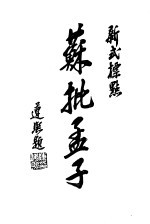 新式標點
蘇批孟子
遵彫題